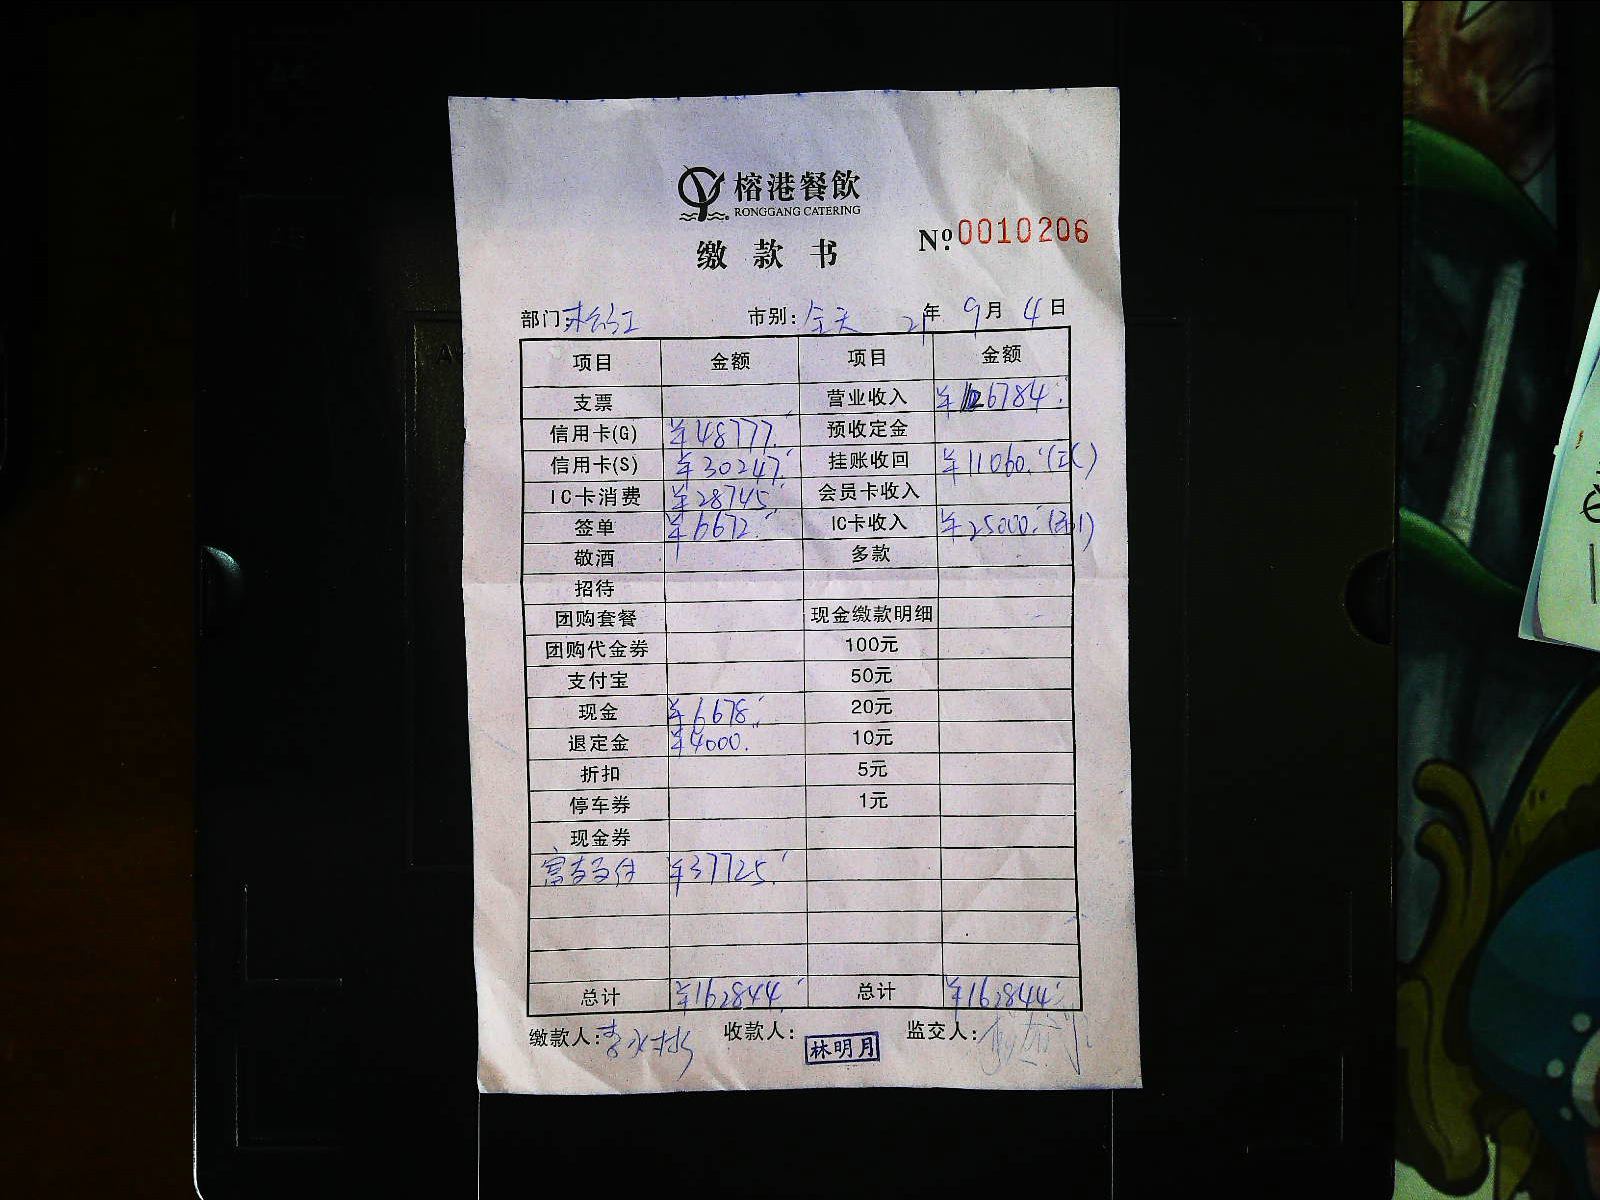 榕港餐飲
RONGGANG CATERING
缴款书 №0010206
部门: 市别:全天 21年9月4日
项目 金额 项目 金额
支票 营业收入 ¥126784.
信用卡(G) ¥48777. 预收定金
信用卡(S) ¥30247. 挂账收回 ¥11060.
IC卡消费 ¥28745. 会员卡收入
签单 ¥6672. IC卡收入 ¥25000.
敬酒 多款
招待
团购套餐 现金缴款明细
团购代金券 100元
支付宝 50元
现金 ¥6678. 20元
退定金 ¥4000. 10元
折扣 5元
停车券 1元
现金券
富友支付 ¥37725.
总计 ¥162844. 总计 ¥162844.
缴款人: 收款人:林明月 监交人: